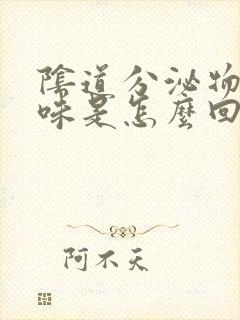 陰道分泌物
味是怎麼回
阿不夭